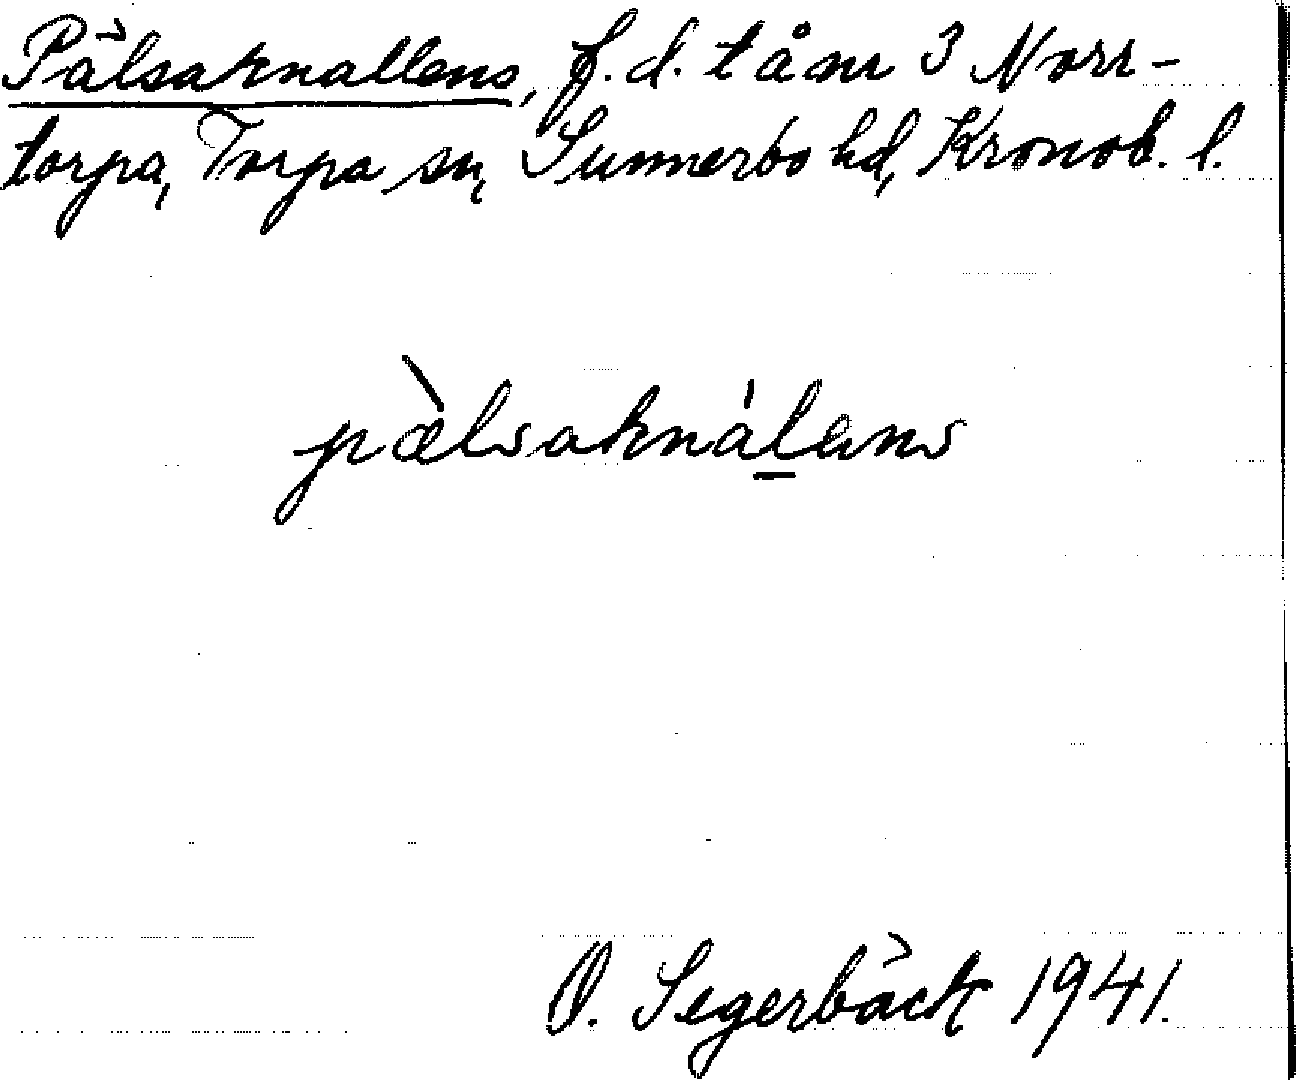 Pälsaknallens, f.d. t å nr 3 Norr-
torpa, Torpa sn, Sunnerbo hd, Kronob. l.
pæ̀lsaknálens
O. Segerbäck 1941.